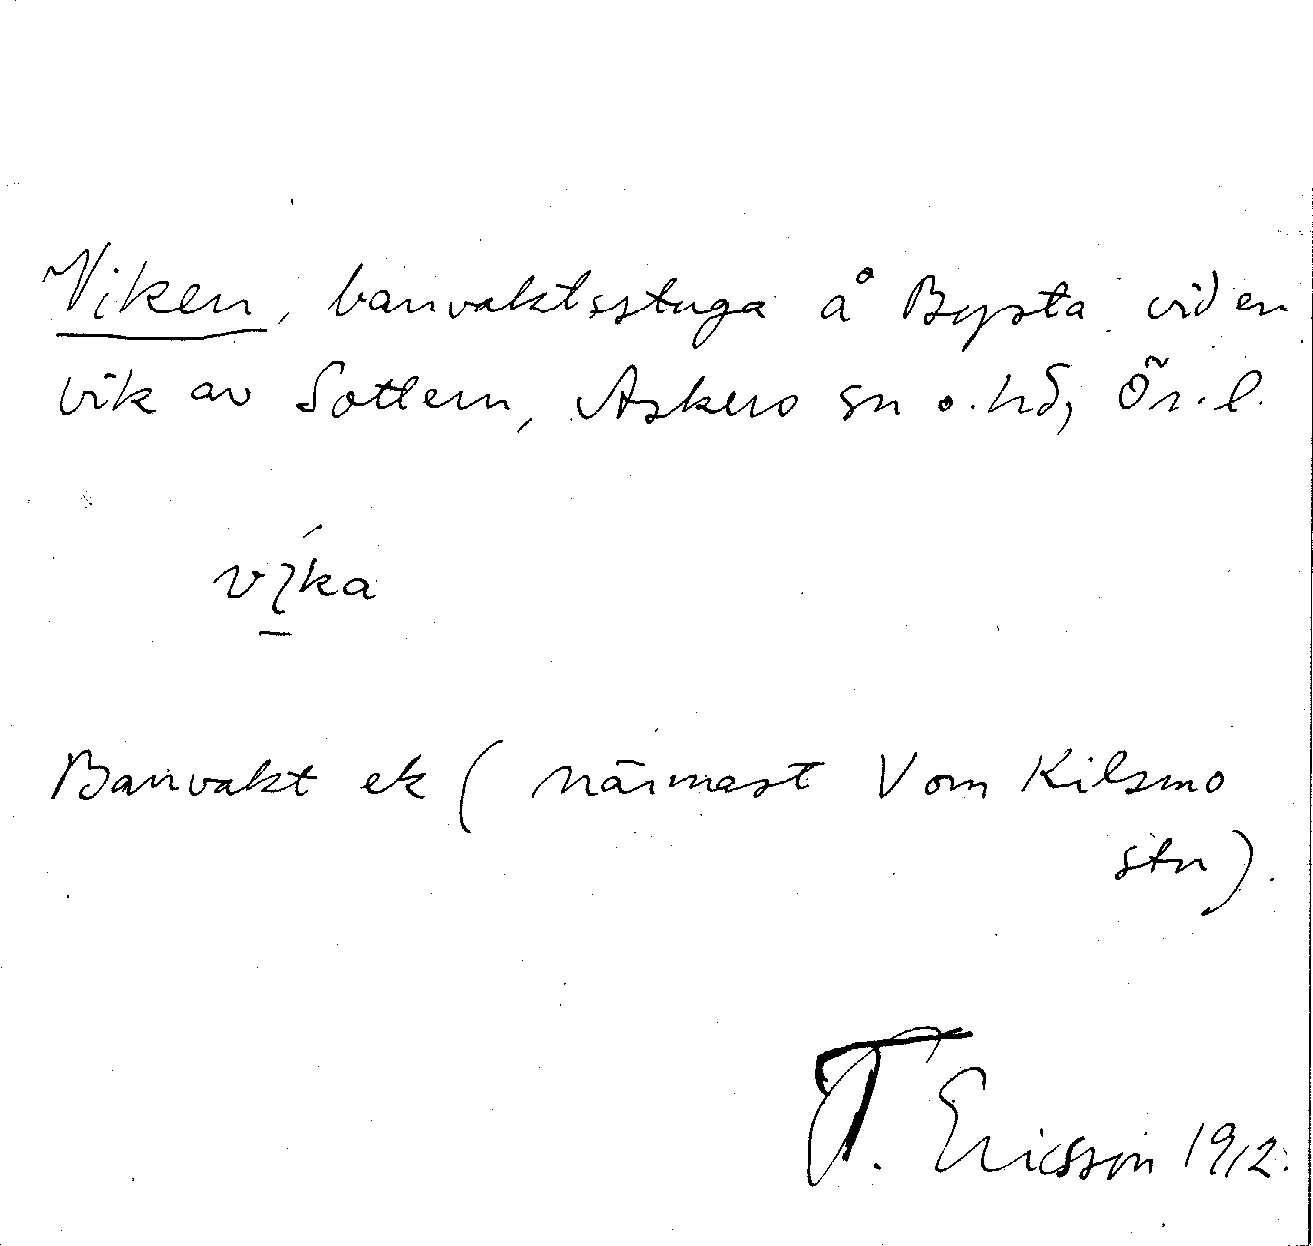 Viken, banvaktsstuga å Bysta vid en
vik av Sottern, Askers sn o. hd, Ör. l.
víka
Banvakt ek (närmast V om Kilsmo
stn).
T. Ericsson 1912.